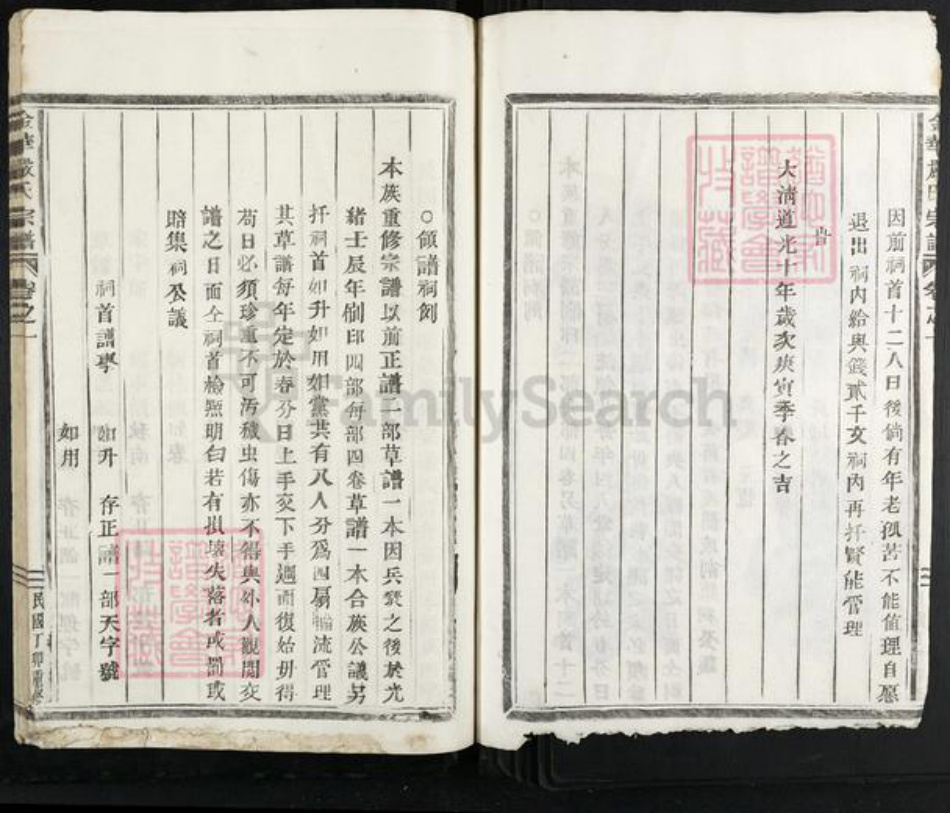 因前祠首十二人日後倘有年老孤苦不能值理自愿
退出祠內給與錢貳千文祠內再扦賢能管理
旹
大清道光十年歲次庚寅季春之吉
金華嚴氏宗譜 卷之一
○領譜祠例
本族重修宗譜以前正譜一部草譜一本因兵燹之後於光
緒壬辰年刷印四部每部四卷草譜一本合族公議另
扦祠首如升如用如黨共有八人分為四房輪流管理
其草譜每年定於春分日上手交下手週而復始毋得
苟且必須珍重不可污穢虫傷亦不得與外人觀閱交
譜之日面仝祠首檢照明白若有損壞失落者或罰或
賠集祠公議
祠首譜孥 如升 存正譜一部天字號
如用
金華嚴氏宗譜 卷之一
民國丁卯重修
FamilySearch